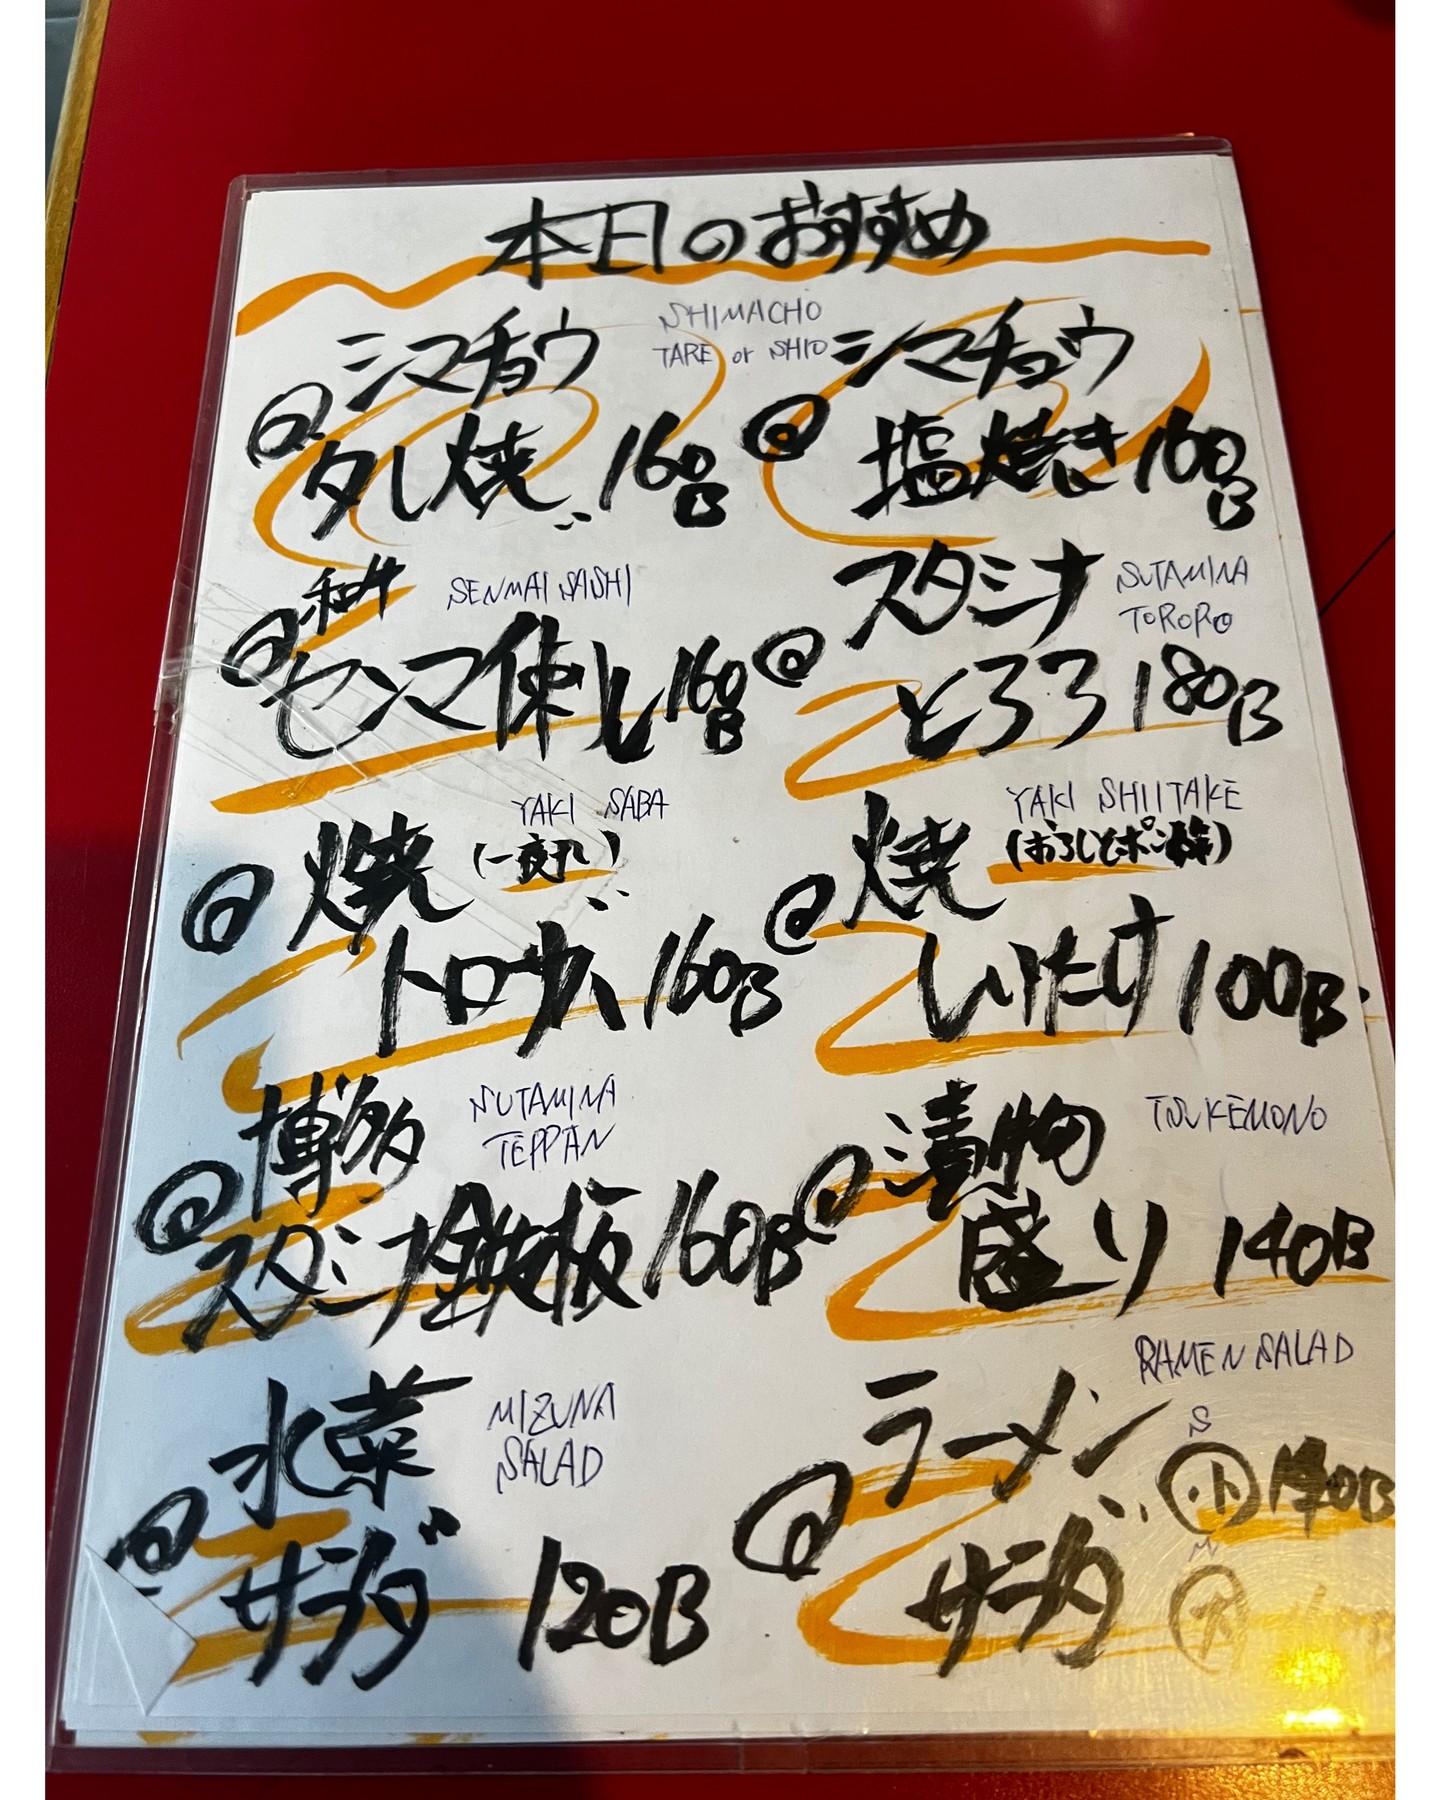 本日のおすすめ
SHIMACHO
TARE or SHIO
@ シマチョウ
タレ焼 160B
@ シマチョウ
塩焼き 160B
SENMAI SASHI
@ 和牛
センマイ刺し 160B
SUTAMINA
TORORO
@ スタミナ
とろろ 180B
YAKI SABA
@ 焼 (一夜干し)
トロサバ 160B
YAKI SHIITAKE
@ 焼 (おろしとポン酢)
しいたけ 100B
SUTAMINA
TEPPAN
@ 博多
スタミナ鉄板 160B
TSUKEMONO
@ 漬物
盛り 140B
MIZUNA
SALAD
@ 水菜
サラダ 120B
RAMEN SALAD
@ ラーメン
サラダ
S
小
M
大